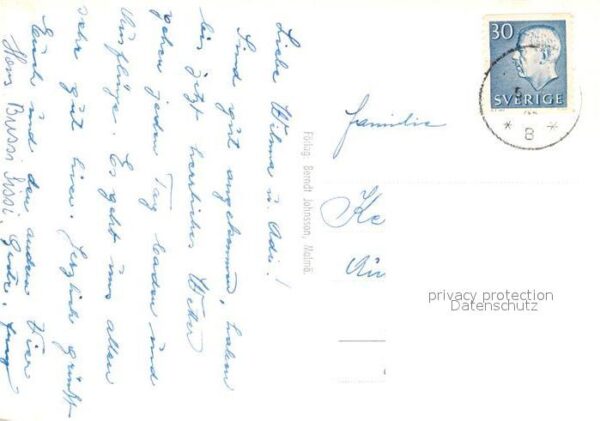 Liebe Wilma u. Adi!
Sind gut angekommen, haben
bis jetzt herrliches Wetter
gehen jeden Tag baden und
Ausflüge. Es geht uns allen
sehr gut hier. Herzliche Grüße
Euch und den anderen Vier
Hans, Bussi, Sissi,
Förlag: Berndt Johnsson, Malmö.
30
SVERIGE
8
Familie
privacy protection
Datenschutz